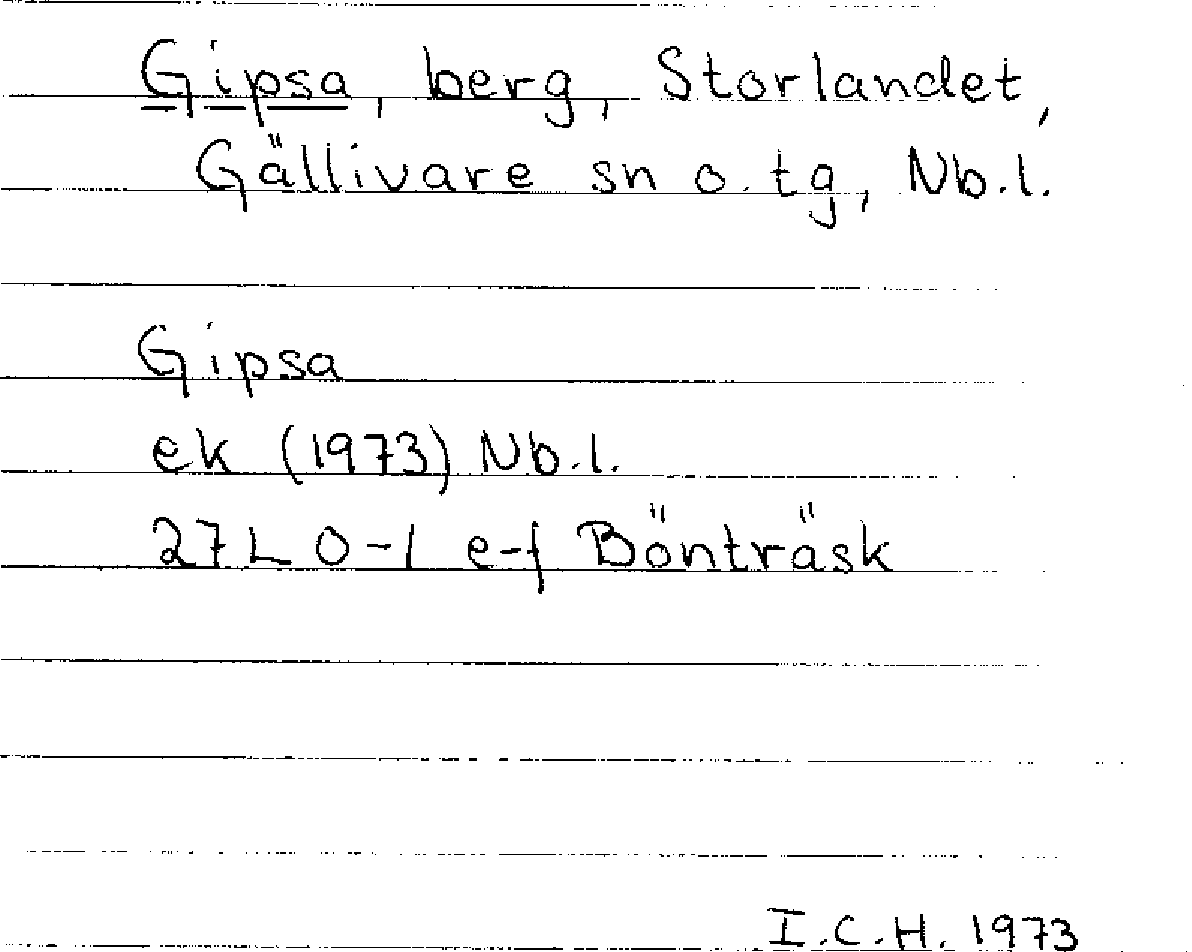 Gipsa, berg, Storlandet,
Gällivare sn o. tg, Nb.l.
Gipsa
ek (1973) Nb.l.
27L 0-1 e-f Bönträsk
I.C.H. 1973